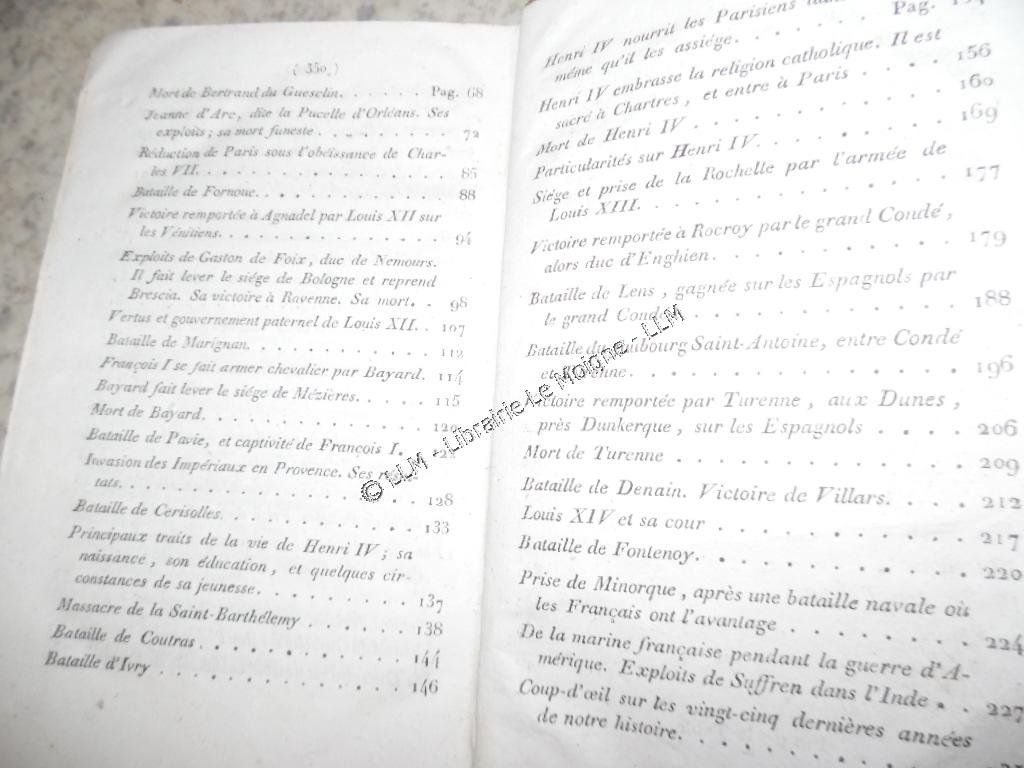 ( 350 )
Mort de Bertrand du Guesclin. . . . . . Pag. 68
Jeanne d'Arc, dite la Pucelle d'Orléans. Ses
exploits ; sa mort funeste . . . . . . . . . 72
Réduction de Paris sous l'obéissance de Char-
les VII. . . . . . . . . . . . . . . . . 85
Bataille de Fornoue. . . . . . . . . . . . 88
Victoire remportée à Agnadel par Louis XII sur
les Vénitiens. . . . . . . . . . . . . . . 94
Exploits de Gaston de Foix, duc de Nemours.
Il fait lever le siége de Bologne et reprend
Brescia. Sa victoire à Ravenne. Sa mort. . 98
Vertus et gouvernement paternel de Louis XII. . 107
Bataille de Marignan. . . . . . . . . . . . 112
François I se fait armer chevalier par Bayard. 114
Bayard fait lever le siége de Mézières. . . . . 115
Mort de Bayard. . . . . . . . . . . . . . 120
Bataille de Pavie, et captivité de François I. . 122
Invasion des Impériaux en Provence. Ses
tats. . . . . . . . . . . . . . . . . . 128
Bataille de Cerisolles. . . . . . . . . . . 133
Principaux traits de la vie de Henri IV ; sa
naissance, son éducation, et quelques cir-
constances de sa jeunesse. . . . . . . . . 137
Massacre de la Saint-Barthélemy . . . . . . 138
Bataille de Coutras . . . . . . . . . . . . 144
Bataille d'Ivry . . . . . . . . . . . . . . 146
Henri IV nourrit les Parisiens
même qu'il les assiége. . . . . Pag.
Henri IV embrasse la religion catholique. Il est
sacré à Chartres, et entre à Paris . . . . 156
Mort de Henri IV . . . . . . . . . . . . 160
Particularités sur Henri IV. . . . . . . . . 169
Siége et prise de la Rochelle par l'armée de
Louis XIII. . . . . . . . . . . . . . . 177
Victoire remportée à Rocroy par le grand Condé,
alors duc d'Enghien. . . . . . . . . . . 179
Bataille de Lens, gagnée sur les Espagnols par
le grand Condé. . . . . . . . . . . . . 188
Bataille du Faubourg Saint-Antoine, entre Condé
et Turenne. . . . . . . . . . . . . . . 196
Victoire remportée par Turenne, aux Dunes,
près Dunkerque, sur les Espagnols . . . . 206
Mort de Turenne . . . . . . . . . . . . . 209
Bataille de Denain. Victoire de Villars. . . . 212
Louis XIV et sa cour . . . . . . . . . . . 217
Bataille de Fontenoy. . . . . . . . . . . . 220
Prise de Minorque, après une bataille navale où
les Français ont l'avantage . . . . . . . 224
De la marine française pendant la guerre d'A-
mérique. Exploits de Suffren dans l'Inde . . 227
Coup-d'œil sur les vingt-cinq dernières années
de notre histoire. . . . . . . . . . . .
© LLM - Librairie Le Moigne - LLM